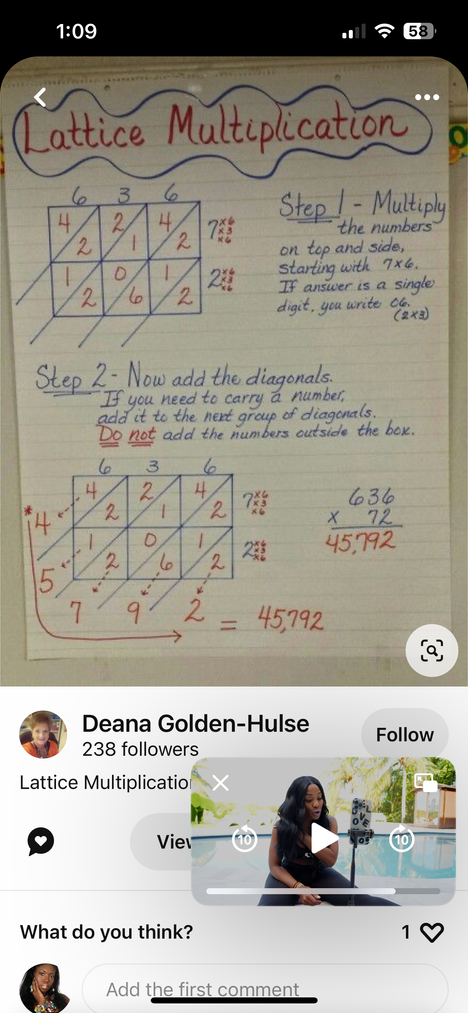 1:09
58
Lattice Multiplication
6 3 6
4 2 2 1 4 2 7 x6 x3 x6
1 2 0 6 1 2 2 x6 x3 x6
Step 1 - Multiply
the numbers
on top and side,
starting with 7x6.
If answer is a single
digit, you write 06.
(2x3)
Step 2 - Now add the diagonals.
If you need to carry a number,
add it to the next group of diagonals.
Do not add the numbers outside the box.
6 3 6
4 2 2 1 4 2 7 x6 x3 x6
*4
1 2 0 6 1 2 2 x6 x3 x6
5
7 9 2 = 45,792
636
x 72
45,792
Deana Golden-Hulse
238 followers
Follow
Lattice Multiplication
10 10
What do you think?
1
Add the first comment